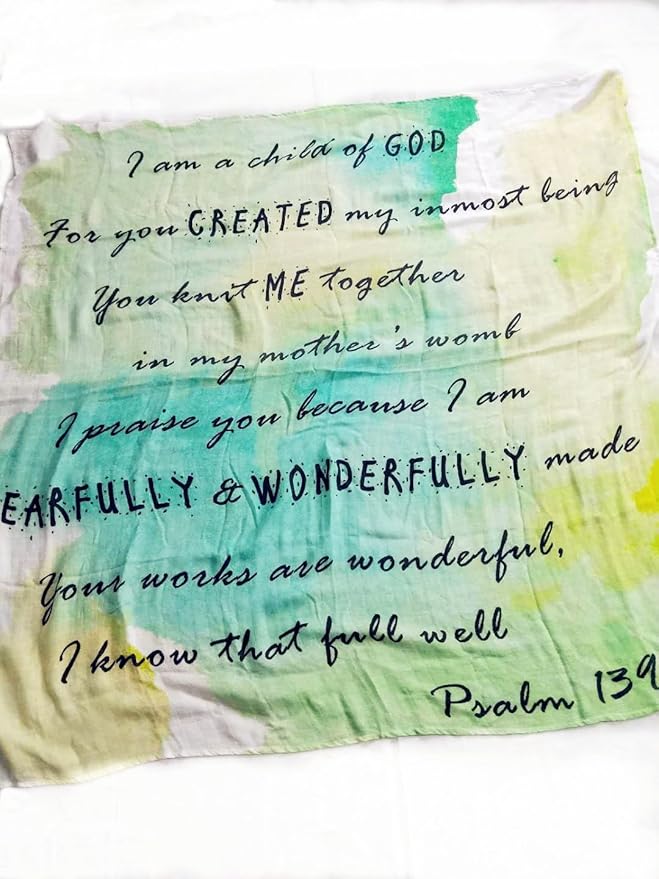 I am a child of GOD
For you CREATED my inmost being
You knit ME together
in my mother's womb
I praise you because I am
EARFULLY & WONDERFULLY made
Your works are wonderful,
I know that full well
Psalm 139